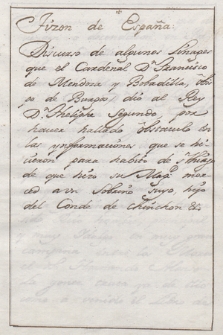 Tizon de España.
Discurso de algunos linages,
que el Cardenal Dn Francisco
de Mendoza y Bobadilla, Obis
po de Burgos, dió al Rey
Dn Phelipe Segundo por
haver hallado obstaculo en
las ynformaciones que se hi
cieron para habito de Santiago
de que hizo su Magd mer
ced a un sobrino suyo hijo
del Conde de Chinchon &c.